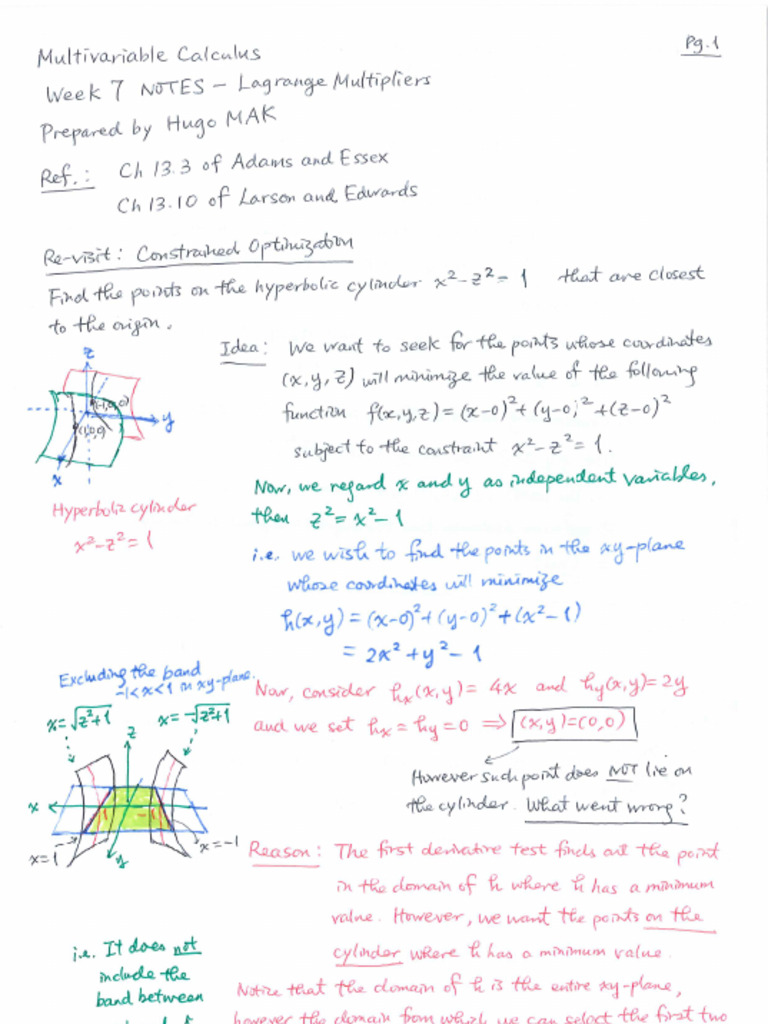 Pg.1
Multivariable Calculus
Week 7 NOTES – Lagrange Multipliers
Prepared by Hugo MAK
Ref.: Ch 13.3 of Adams and Essex
Ch 13.10 of Larson and Edwards
Re-visit: Constrained Optimization
Find the points on the hyperbolic cylinder x²-z²=1 that are closest
to the origin.
Idea: We want to seek for the points whose coordinates
(x,y,z) will minimize the value of the following
function f(x,y,z)=(x-0)²+(y-0)²+(z-0)²
subject to the constraint x²-z²=1.
z
(-1,0,0)
y
(1,0,0)
x
Hyperbolic cylinder
x²-z²=1
Now, we regard x and y as independent variables,
then z²=x²-1
i.e. we wish to find the points in the xy-plane
whose coordinates will minimize
h(x,y)=(x-0)²+(y-0)²+(x²-1)
= 2x²+y²-1
Excluding the band
-1<x<1 in xy-plane.
x=√z²+1 x=-√z²+1
z
x
1 -1
x=1 y x=-1
Now, consider hx(x,y)= 4x and hy(x,y)=2y
and we set hx=hy=0 ⇒ (x,y)=(0,0)
However such point does NOT lie on
the cylinder. What went wrong?
Reason: The first derivative test finds out the point
in the domain of h where h has a minimum
value. However, we want the points on the
cylinder where h has a minimum value.
i.e. It does not
include the
band between
Notice that the domain of h is the entire xy-plane,
however the domain from which we can select the first two